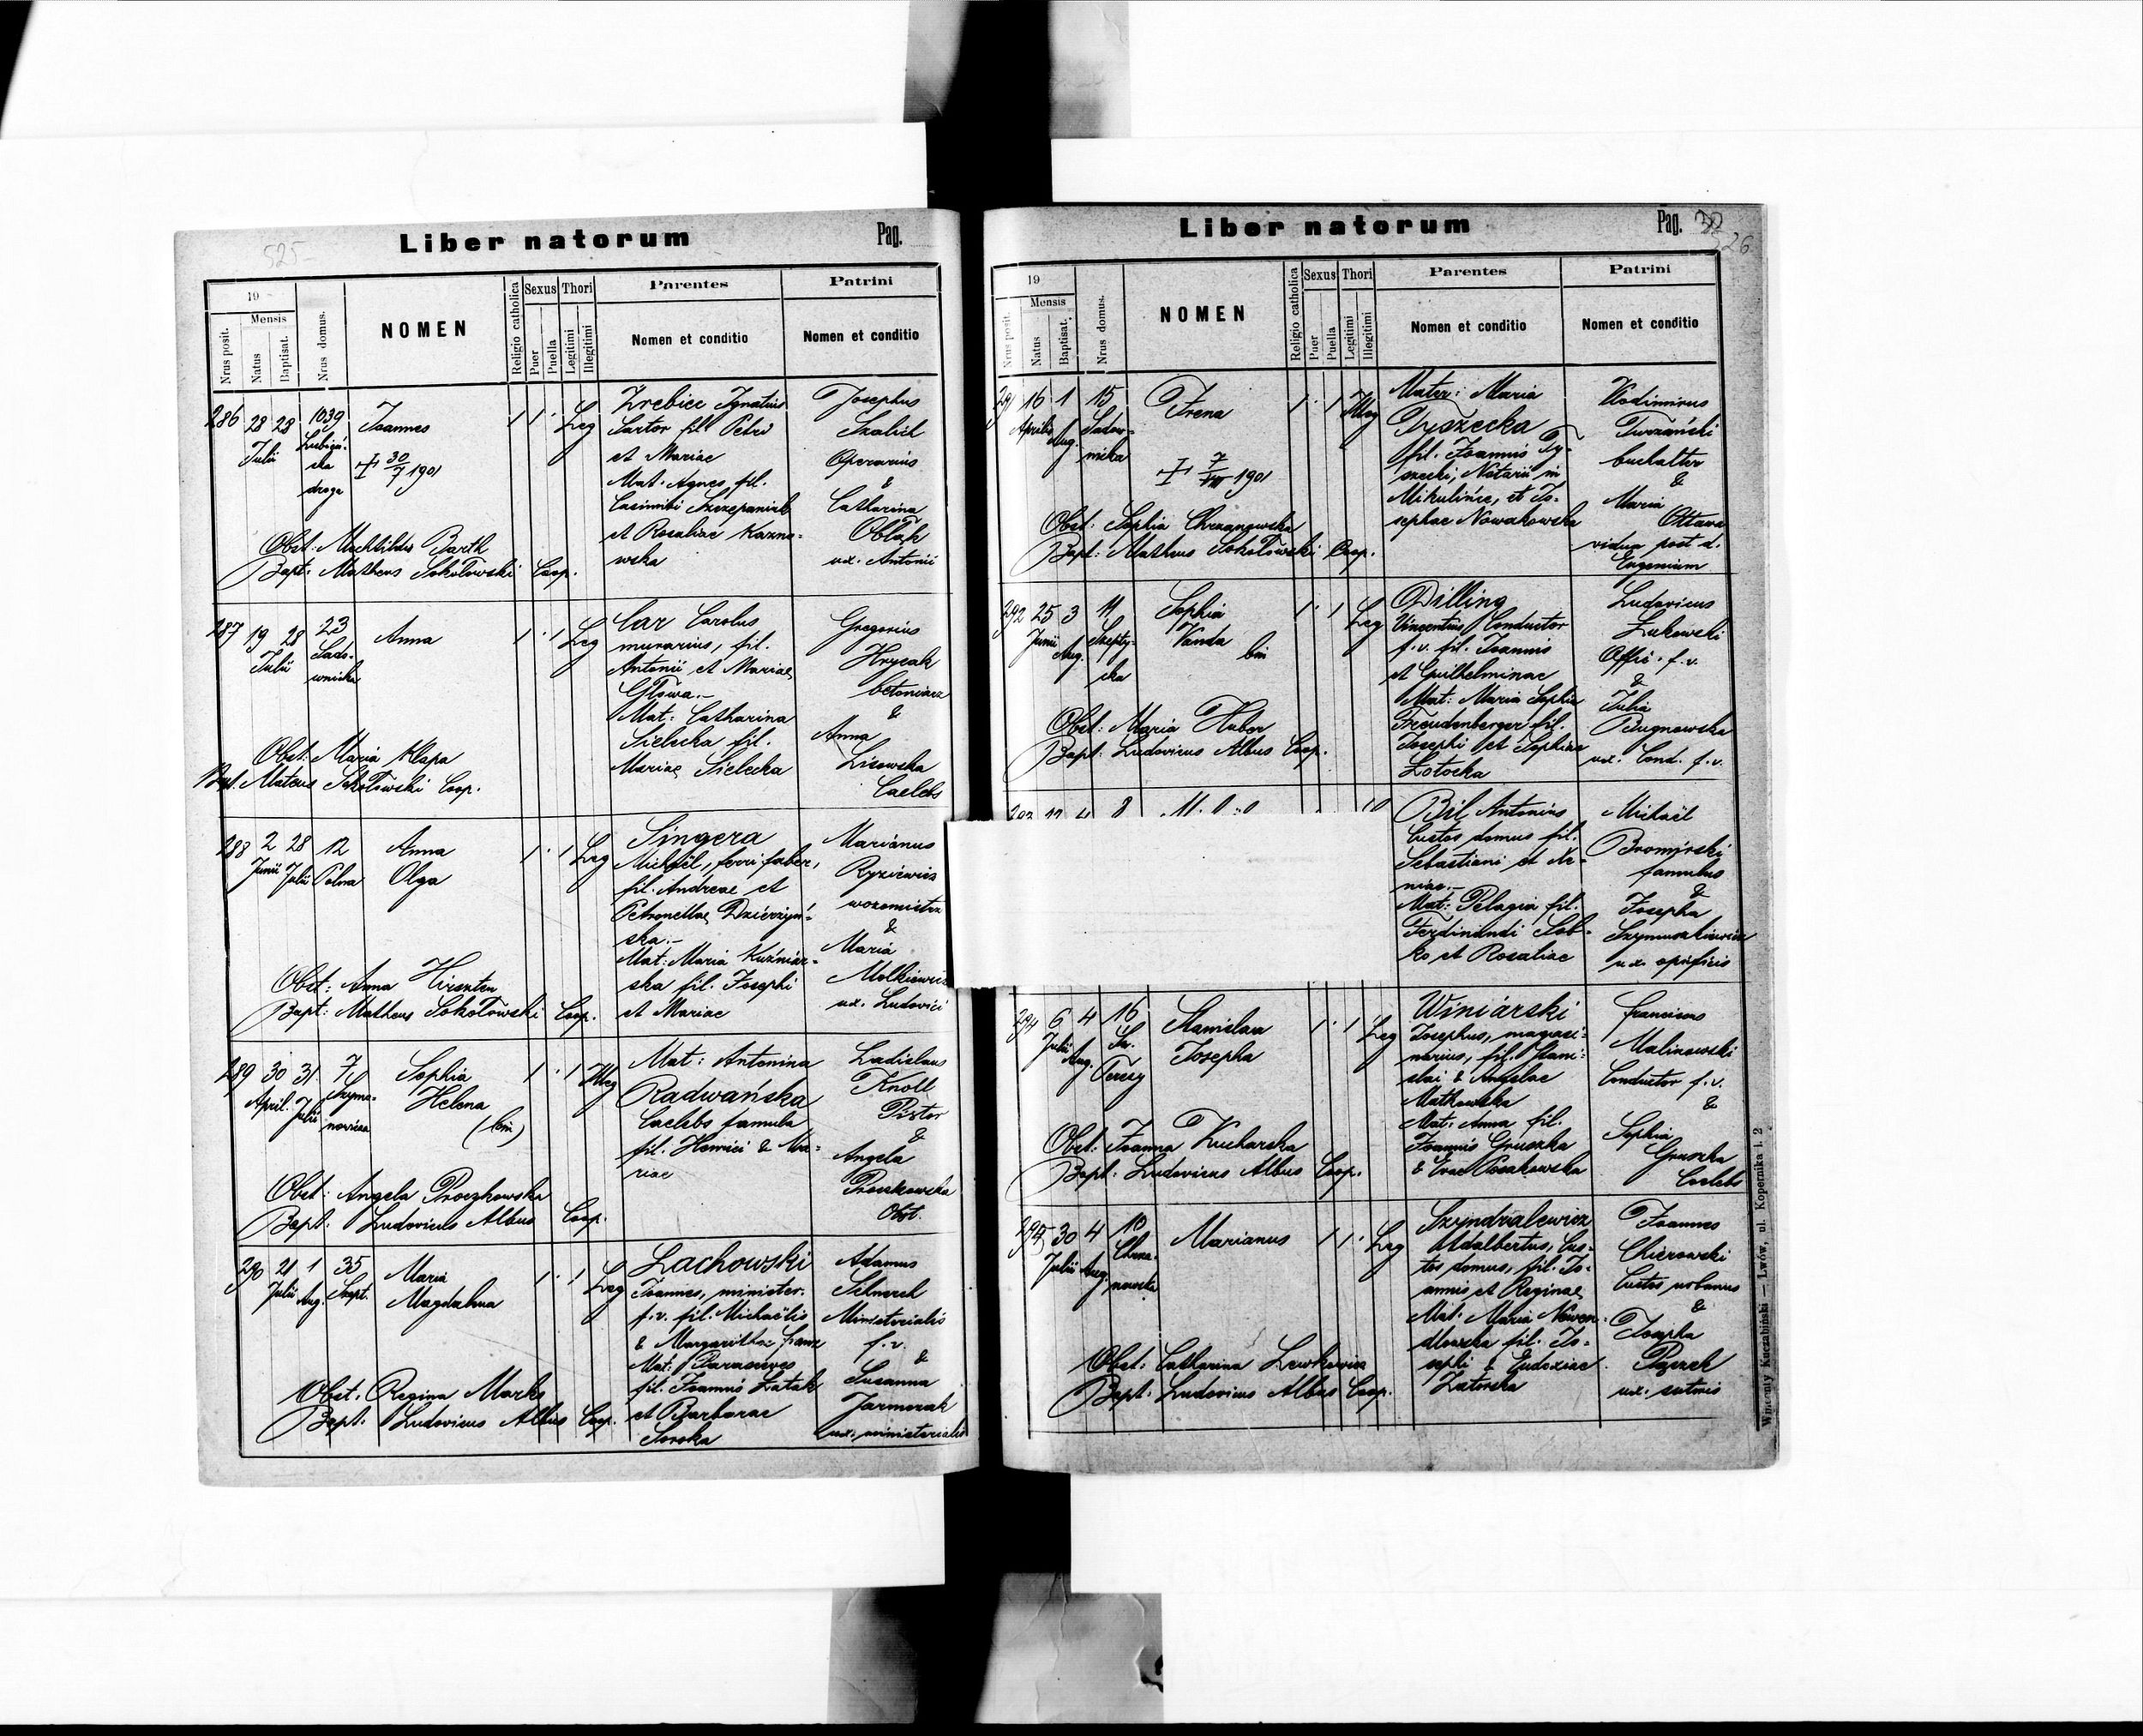 525
Liber natorum Pag.
19
Mensis
Nrus posit.
Natus
Baptisat.
Nrus domus.
NOMEN
Religio catholica
Sexus
Puer
Puella
Thori
Legitimi
Illegitimi
Parentes
Nomen et conditio
Patrini
Nomen et conditio
286 28 28 1039 Joannes 1 1 Leg
Julii
droga
+ 30/7 1901
Zrebiec Ignatius
Sartor fil. Petri
et Mariae
Mat. Agnes, fil.
Casimiri Szczepaniak
et Rosaliae Kazno-
wska
Josephus
Operarius
&
Catharina
Obłąk
ux. Antonii
Obst. Mechtildis Barth
Bapt: Matheus Sokołowski Coop.
287 19 28 23 Anna 1 1 Leg
Julii
Sado-
wnicka
Car Carolus
murarius, fil.
Antonii et Mariae
Głowa.-
Mat: Catharina
Sielecka fil.
Mariae Sielecka
Gregorius
Hrycak
betoniarz
&
Anna
Lisowska
Caelebs
Obst: Maria Klapa
Bapt. Mateus Sokołowski Coop.
288 2 28 12 Anna 1 1 Leg
Junii Julii Polna Olga
Singera
Michaël, ferri faber,
fil. Andreae et
Petronellae Dzierżyń-
ska.-
Mat: Maria Kuźniar-
ska fil. Josephi
et Mariae
Marianus
wozomistrz
&
Maria
ux. Ludovici
Obst: Anna
Bapt: Matheus Sokołowski Coop.
289 30 31 7 Sophia 1 1 Illeg
April. Julii Helena
(bin)
Szymo-
nowicza
Mat: Antonina
Radwańska
Caelebs famula
fil. Henrici & Ma-
riae
Ladislaus
Knoll
Pistor
&
Angela
Proszkowska
Obst.
Obst: Angela Proszkowska
Bapt: Ludovicus Albus Coop.
290 21 1 35 Maria 1 1 Leg
Julii Aug. Szept. Magdalena
Lachowski
Joannes, minister.
f.v. fil. Michaëlis
& Margarithae
Mat: Parasceves
fil. Joannis Łatak
et Barbarae
Soroka
Adamus
Ministerialis
f.v.
&
Susanna
Jarmorak
ux. ministerialis
Obst: Regina Marks
Bapt: Ludovicus Albus Coop.
Liber natorum Pag.
526
19
Mensis
Nrus posit.
Natus
Baptisat.
Nrus domus.
NOMEN
Religio catholica
Sexus
Puer
Puella
Thori
Legitimi
Illegitimi
Parentes
Nomen et conditio
Patrini
Nomen et conditio
291 16 1 15 Irena 1 1 Illeg
Aprilis Aug. Sadow-
nicka
+ 7/VIII 1901
Mater: Maria
Tyszecka
fil. Joannis Ty-
szecki, Notarii in
Mikulińce, et Jo-
sephae Nowakowska
Wladimirus
Turzański
buchalter
&
Maria
Ottawa
vidua post d.
Eugenium
Obst: Sophia Chrzanowska
Bapt: Matheus Sokołowski Coop.
292 25 3 11 Sophia 1 1 Leg
Junii Aug. Szepty-
cka
Vanda bin
Dilling
Vincentius Conductor
f.v. fil. Joannis
et Guilhelminae
Mat: Maria Sophia
Freudenberger fil.
Josephi et Sophiae
Łotocka
Ludovicus
Żukowski
Offic. f.v.
&
Julia
Pugnowska
ux. Cond. f.v.
Obst: Maria Huber
Bapt: Ludovicus Albus Coop.
Bil Antonius
Custos domus fil.
Sebastiani et
Mat: Pelagia fil.
Ferdinandi Sob-
ko et Rosaliae
Michaël
Bromirski
famulus
&
Josepha
ux. opificis
294 6 4 16 Stanislava 1 1 Leg
Julii Aug. Św.
Teresy
Josepha
Winiarski
Josephus, magazi-
narius, fil. Stani-
slai &
Matkowska
Mat. Anna fil.
Joannis Gruszka
& Evae
Franciscus
Malinowski
Conductor f.v.
&
Sophia
Gruszka
Caelebs
Obst: Joanna Kucharska
Bapt: Ludovicus Albus Coop.
295 30 4 10 Marianus 1 1 Leg
Julii Aug.
Szyndralewicz
Adalbertus, Cus-
tos domus, fil. Jo-
annis et Reginae
Mat. Maria
fil. Jo-
sephi & Eudoxiae
Zatorska
Joannes
Custos urbanus
&
Josepha
ux. sutoris
Obst: Catharina Lewkowicz
Bapt: Ludovicus Albus Coop.
Wincenty Kuczabiński — Lwów, ul. Kopernika l. 2